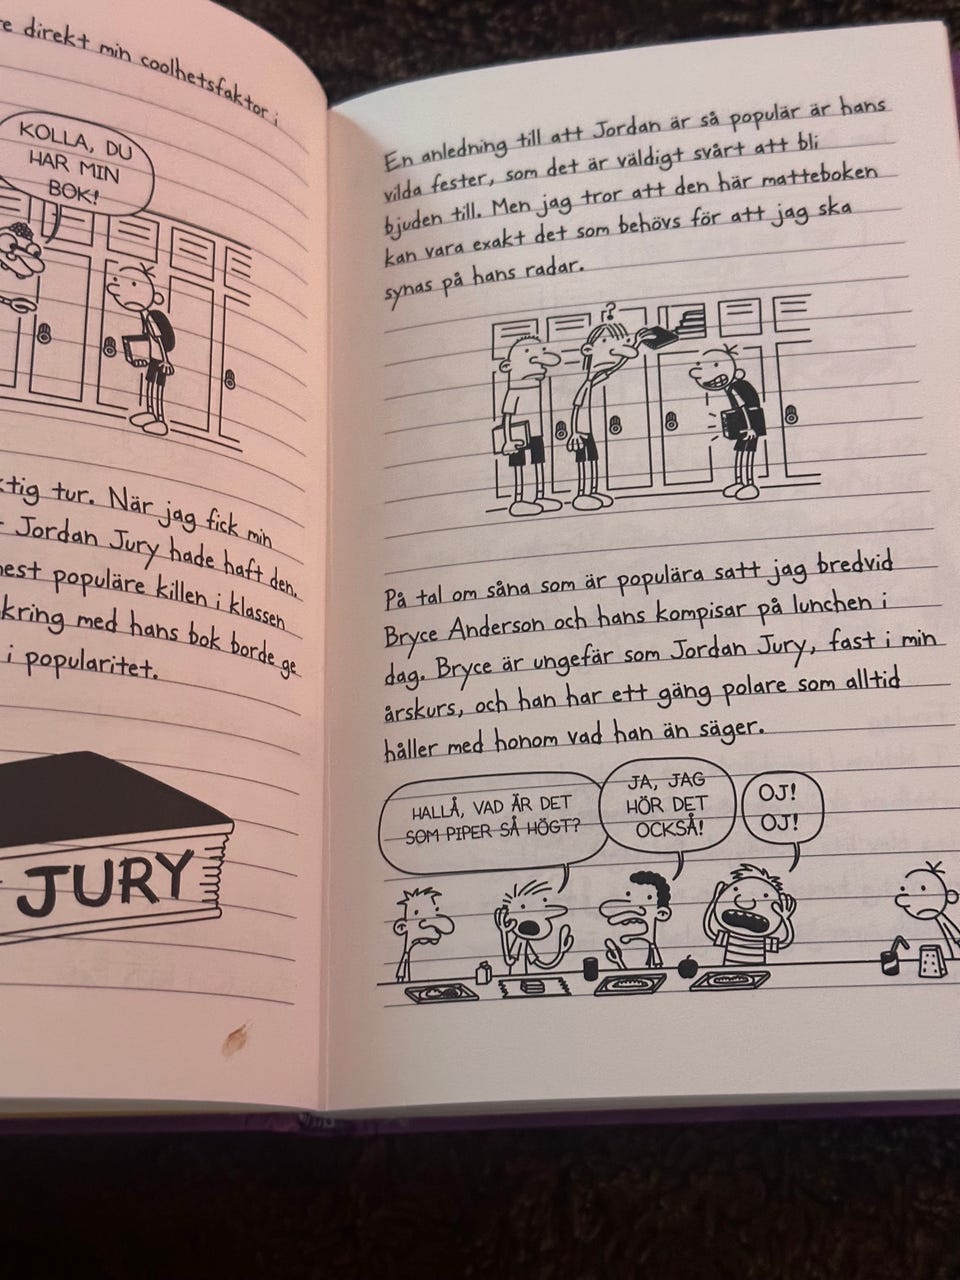 direkt min coolhetsfaktor i
KOLLA, DU
HAR MIN
BOK!
tur. När jag fick min
Jordan Jury hade haft den.
populäre killen i klassen
kring med hans bok borde ge
i popularitet.
JURY
En anledning till att Jordan är så populär är hans
vilda fester, som det är väldigt svårt att bli
bjuden till. Men jag tror att den här matteboken
kan vara exakt det som behövs för att jag ska
synas på hans radar.
?
På tal om såna som är populära satt jag bredvid
Bryce Anderson och hans kompisar på lunchen i
dag. Bryce är ungefär som Jordan Jury, fast i min
årskurs, och han har ett gäng polare som alltid
håller med honom vad han än säger.
HALLÅ, VAD ÄR DET
SOM PIPER SÅ HÖGT?
JA, JAG
HÖR DET
OCKSÅ!
OJ!
OJ!